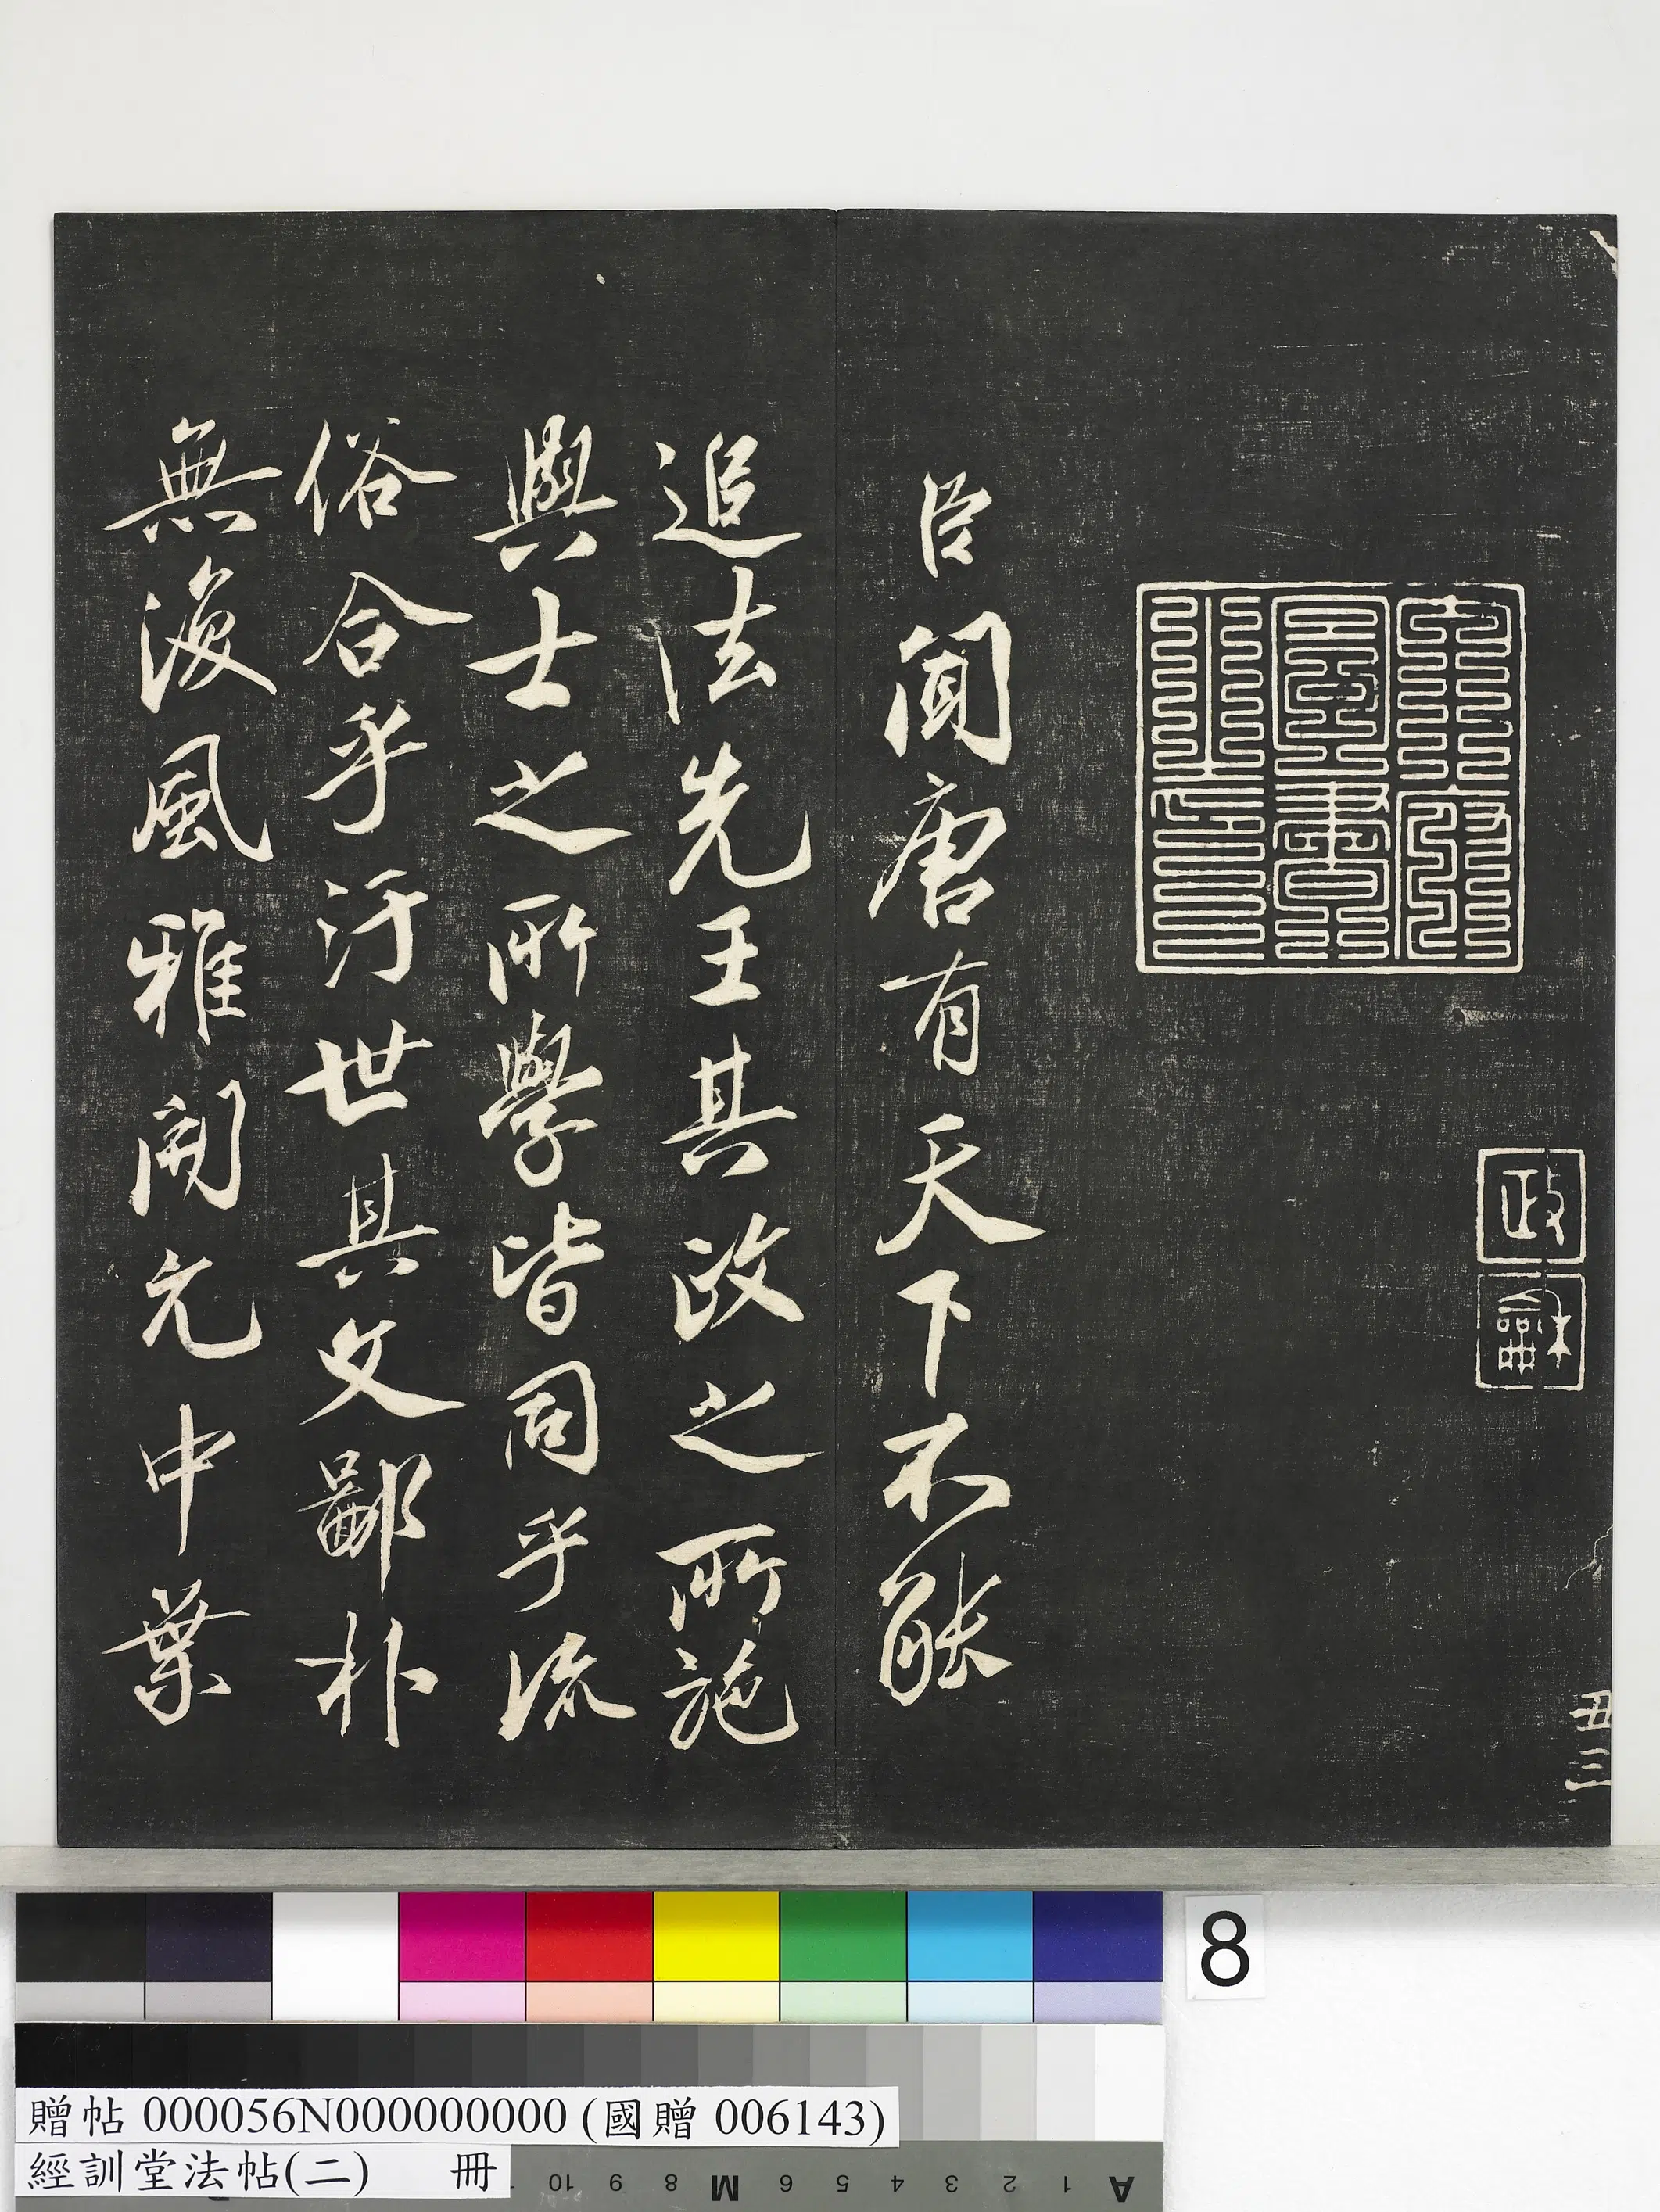 政
和
丑三
臣聞唐有天下不能
追法先王其政之所施
與士之所學皆同乎流
俗合乎汙世其文鄙朴
無復風雅開元中葉
8
贈帖 000056N000000000 (國贈 006143)
經訓堂法帖(二) 冊
10 9 8 M 6 5 4 3 2 1 A